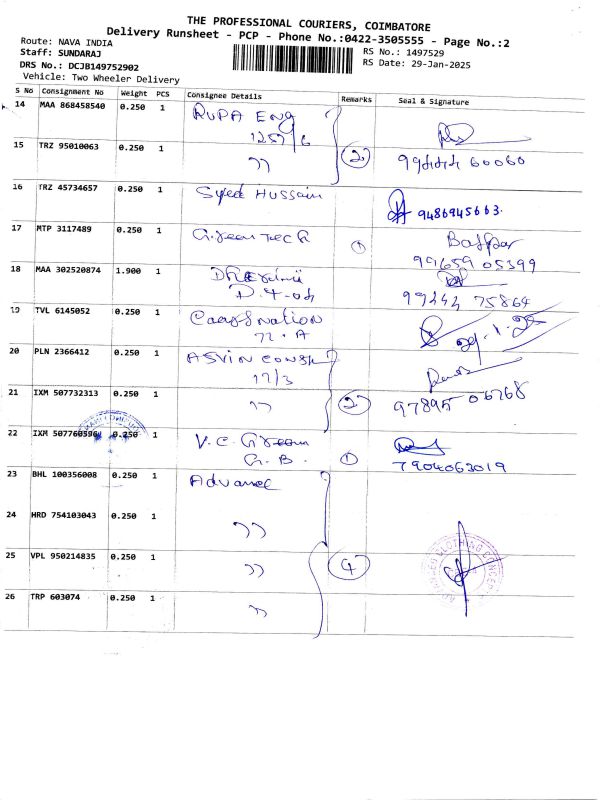 THE PROFESSIONAL COURIERS, COIMBATORE
Delivery Runsheet - PCP - Phone No.:0422-3505555 - Page No.:2
Route: NAVA INDIA
Staff: SUNDARAJ
DRS No.: DCJB149752902
Vehicle: Two Wheeler Delivery
RS No.: 1497529
RS Date: 29-Jan-2025
S No Consignment No Weight PCS Consignee Details Remarks Seal & Signature
14 MAA 868458540 0.250 1 RUPA ENG
1257/6
15 TRZ 95010063 0.250 1 " 2 99444 60060
16 TRZ 45734657 0.250 1 Syed Hussain 9486945663.
17 MTP 3117489 0.250 1 Green Tech 1
99659 05399
18 MAA 302520874 1.900 1
99444 75864
19 TVL 6145052 0.250 1 29.1.25
72.A
20 PLN 2366412 0.250 1 ASVIN CONST
17/3
21 IXM 507732313 0.250 1 " 2 97895 06768
22 IXM 507760596 0.250 1 V.C. Green
G.B. 1 7904063019
23 BHL 100356008 0.250 1 Advance
24 HRD 754103043 0.250 1 "
25 VPL 950214835 0.250 1 " 4
26 TRP 603074 0.250 1 "